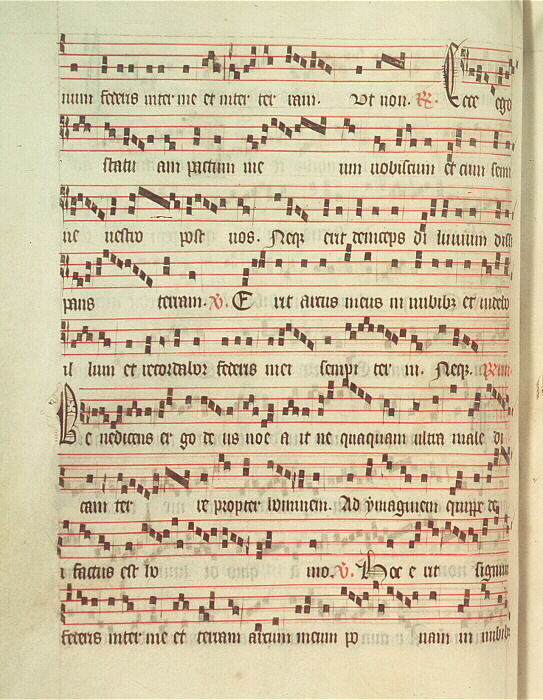 num federis inter me et inter ter ram. Ut non. R. Ecce ego
statu am pactum me um vobiscum et cum semi
ne vestro post vos. Neqȝ. erit deinceps di luvium dissi
pans terram. V. E rit arcus meus in nubibȝ et videbo
il lum et recordabor federis mei sempi ter ni. Neqȝ.
Be nedicens er go de us noe a it ne quaquam ultra male di
cam ter re propter hominem. Ad ymaginem quippe de
i factus est ho mo. V. Hoc e rit signum
federis inter me et terram arcum meum po nam in nubibȝ